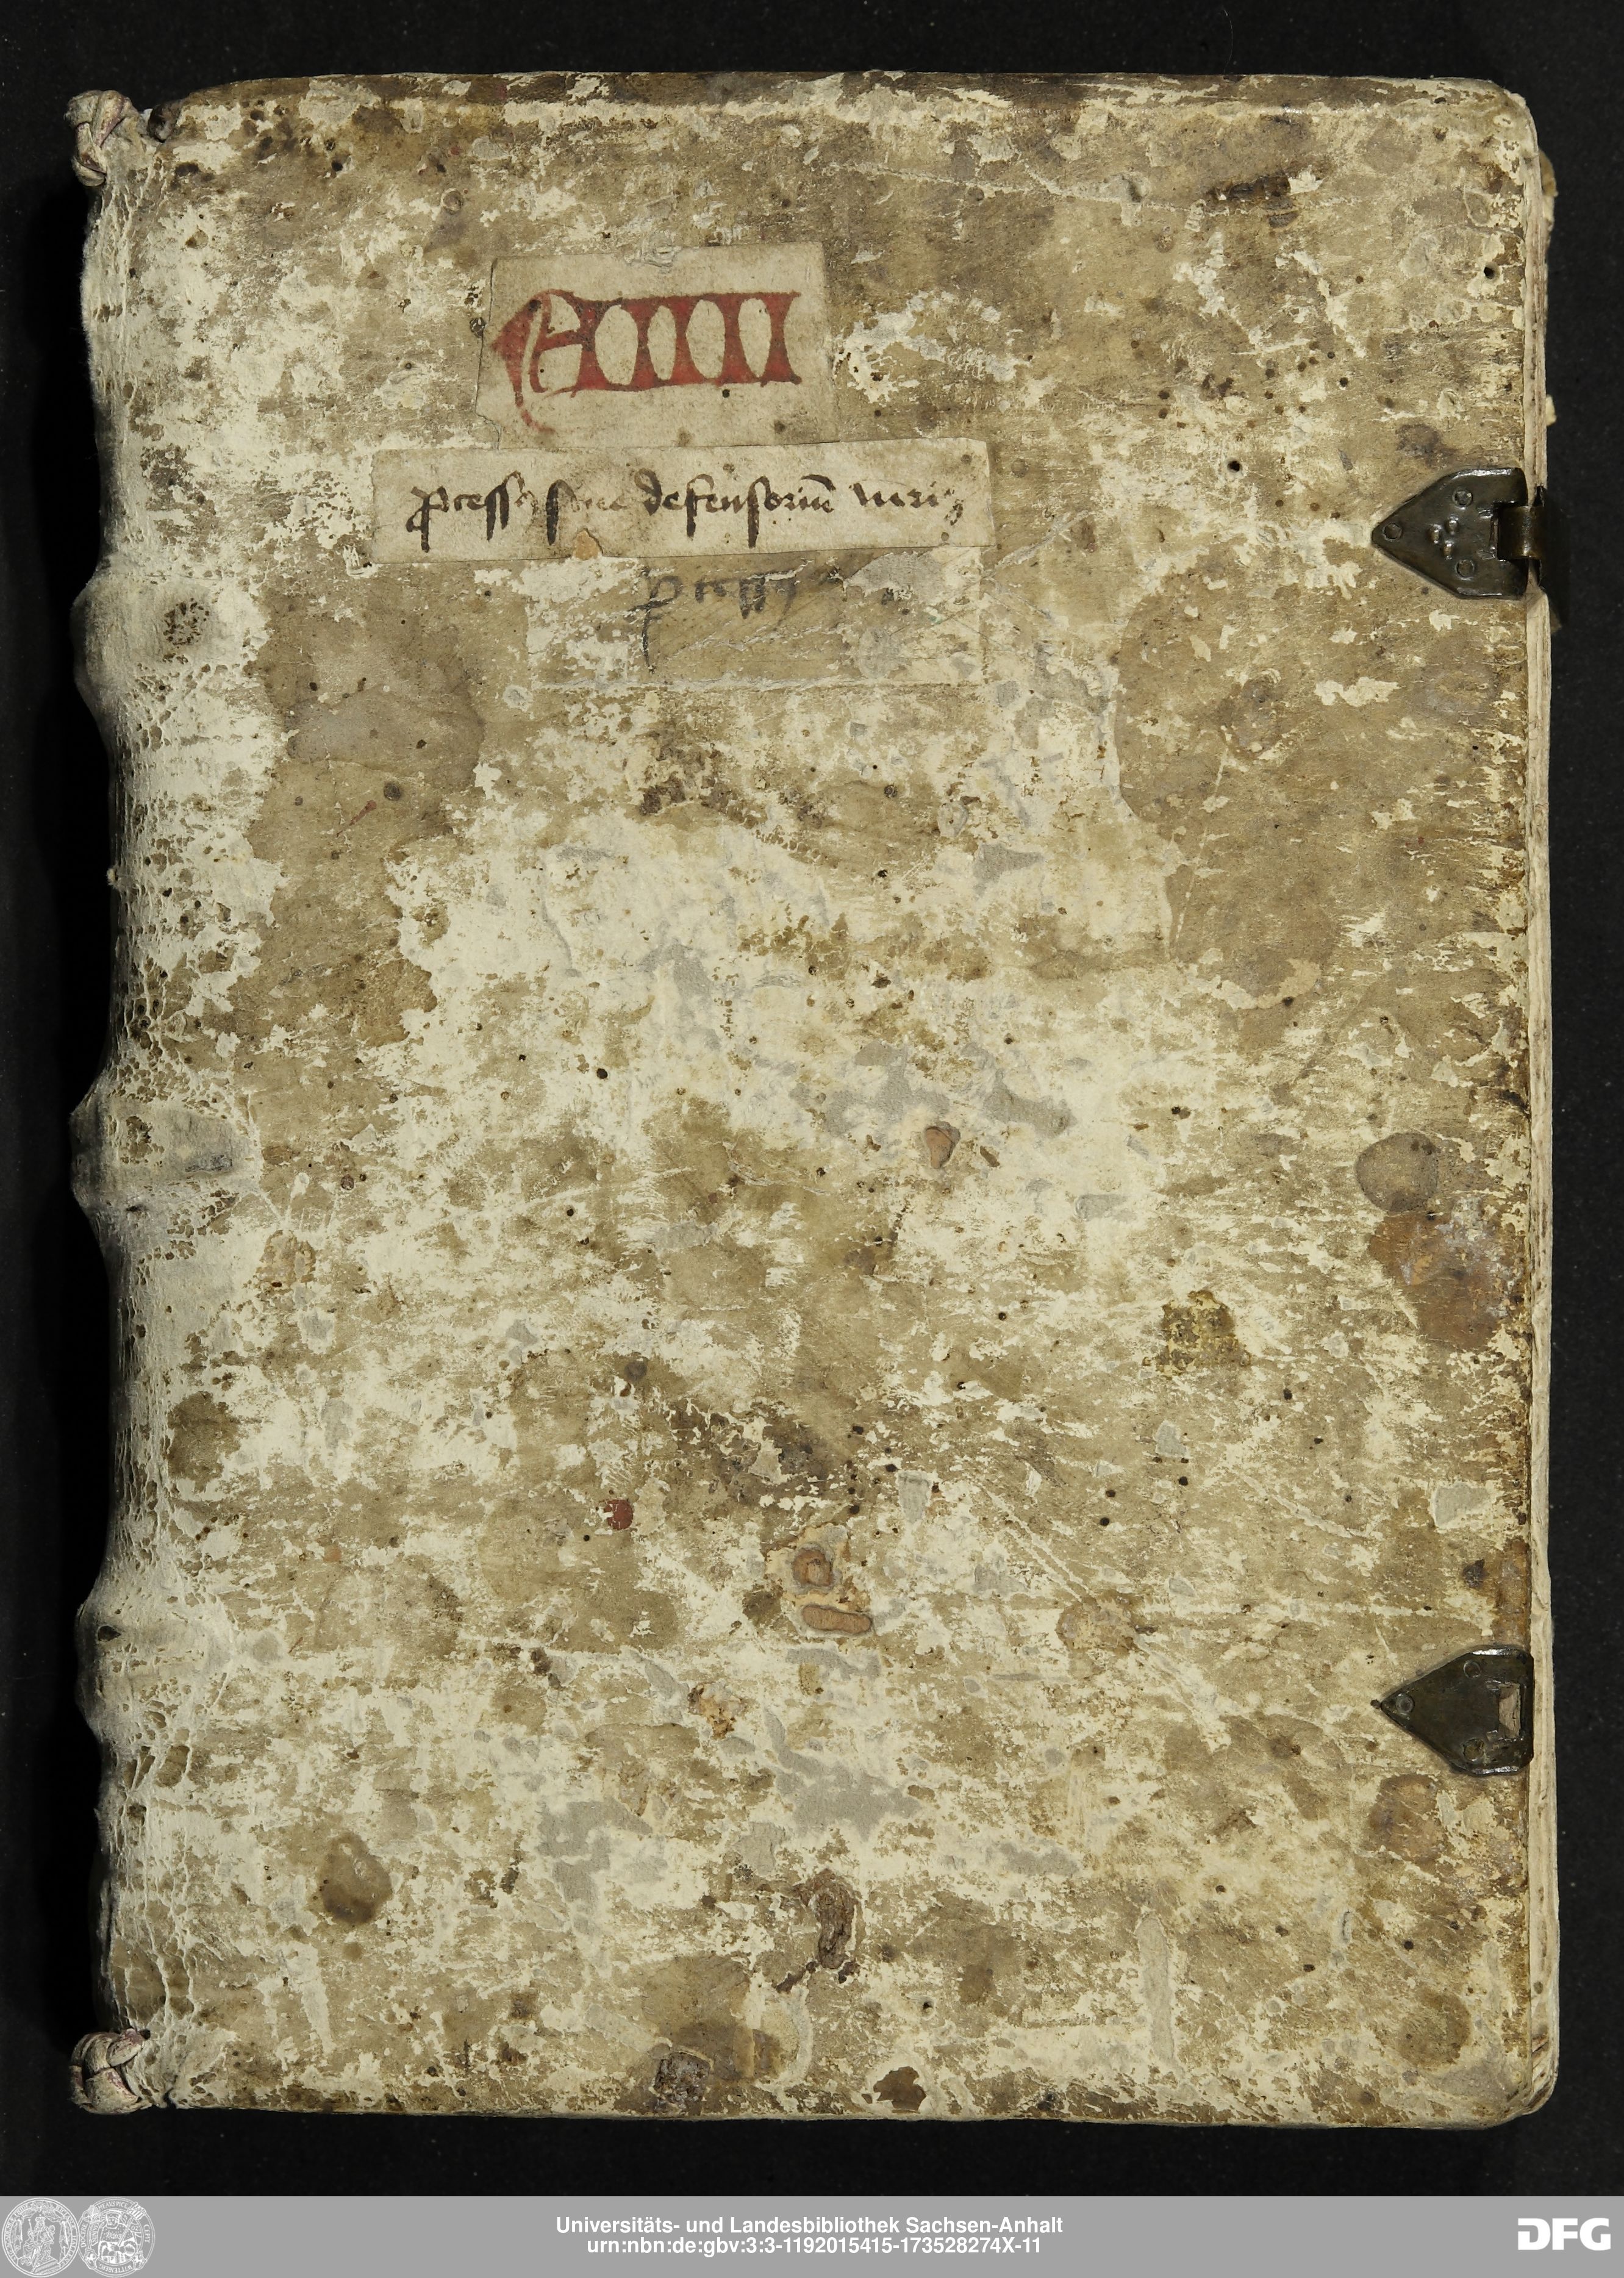 EIIII
ꝓcessꝰ siue defensoriū iuris
ꝓcessꝰ
Universitäts- und Landesbibliothek Sachsen-Anhalt
urn:nbn:de:gbv:3:3-1192015415-173528274X-11
DFG